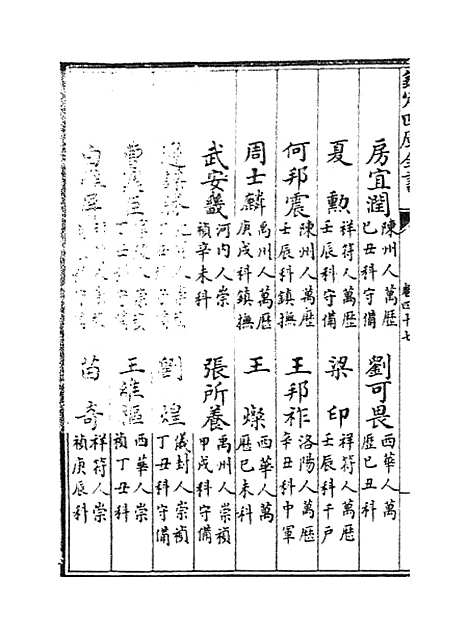 欽定四庫全書
卷四十七
房宜潤 陳州人萬歷己丑科守備
劉可畏 西華人萬歷己丑科
夏勲 祥符人萬歷壬辰科守備
梁印 祥符人萬歷壬辰科千戶
何邦震 陳州人萬歷壬辰科鎮撫
王邦祚 洛陽人萬歷辛丑科中軍
周士麟 禹州人萬歷庚戌科鎮撫
王燦 西華人萬歷己未科
武安畿 河内人崇禎辛未科
張所養 禹州人崇禎甲戌科守備
劉煌 儀封人崇禎丁丑科守備
人崇 丁丑科
王維 西華人崇禎丁丑科
苗奇 祥符人崇禎庚辰科